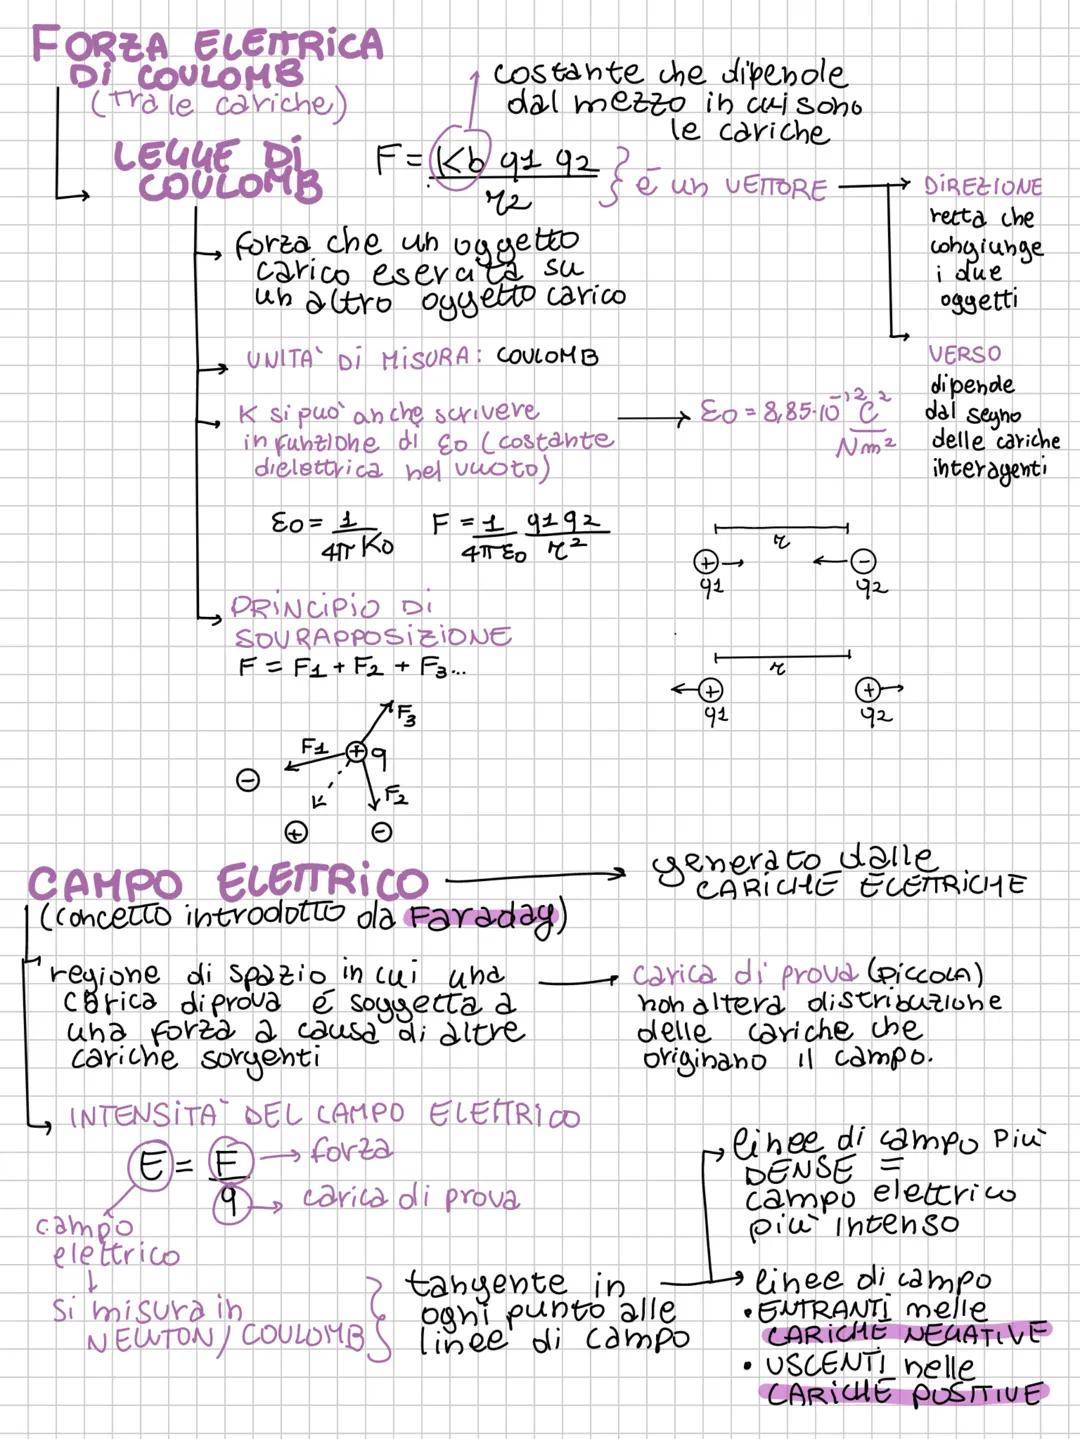 FORZA ELETTRICA
DI COULOMB
(tra le cariche)
costante che dipende
dal mezzo in cui sono
le cariche
LEGGE DI
COULOMB
F = Kb q1 q2
r2
è un VETTORE
DIREZIONE
retta che
congiunge
i due
oggetti
forza che un oggetto
carico esercita su
un altro oggetto carico
VERSO
dipende
dal segno
delle cariche
interagenti
UNITA' DI MISURA: COULOMB
K si può anche scrivere
in funzione di ε0 (costante
dielettrica nel vuoto)
ε0 = 8,85·10⁻¹² C²
Nm²
ε0 = 1
4π K0
F = 1 q1 q2
4π ε0 r²
r
+ −
q1 q2
PRINCIPIO DI
SOVRAPPOSIZIONE
F = F1 + F2 + F3...
r
+ +
q1 q2
F3
F1 + q
−
F2
+ −
CAMPO ELETTRICO
generato dalle
CARICHE ELETTRICHE
(concetto introdotto da Faraday)
regione di spazio in cui una
carica di prova é soggetta a
una forza a causa di altre
cariche sorgenti
carica di prova (PICCOLA)
non altera distribuzione
delle cariche che
originano il campo.
INTENSITA' DEL CAMPO ELETTRICO
E = F
q
forza
carica di prova
campo
elettrico
si misura in
NEWTON/COULOMB
tangente in
ogni punto alle
linee di campo
linee di campo più
DENSE =
campo elettrico
più intenso
linee di campo
• ENTRANTI nelle
CARICHE NEGATIVE
• USCENTI nelle
CARICHE POSITIVE